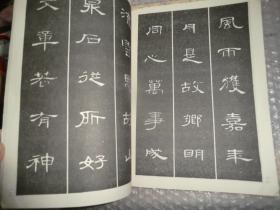 風雨獲嘉年
月是故鄉明
同心萬事成
泉石從所好
文章若有神